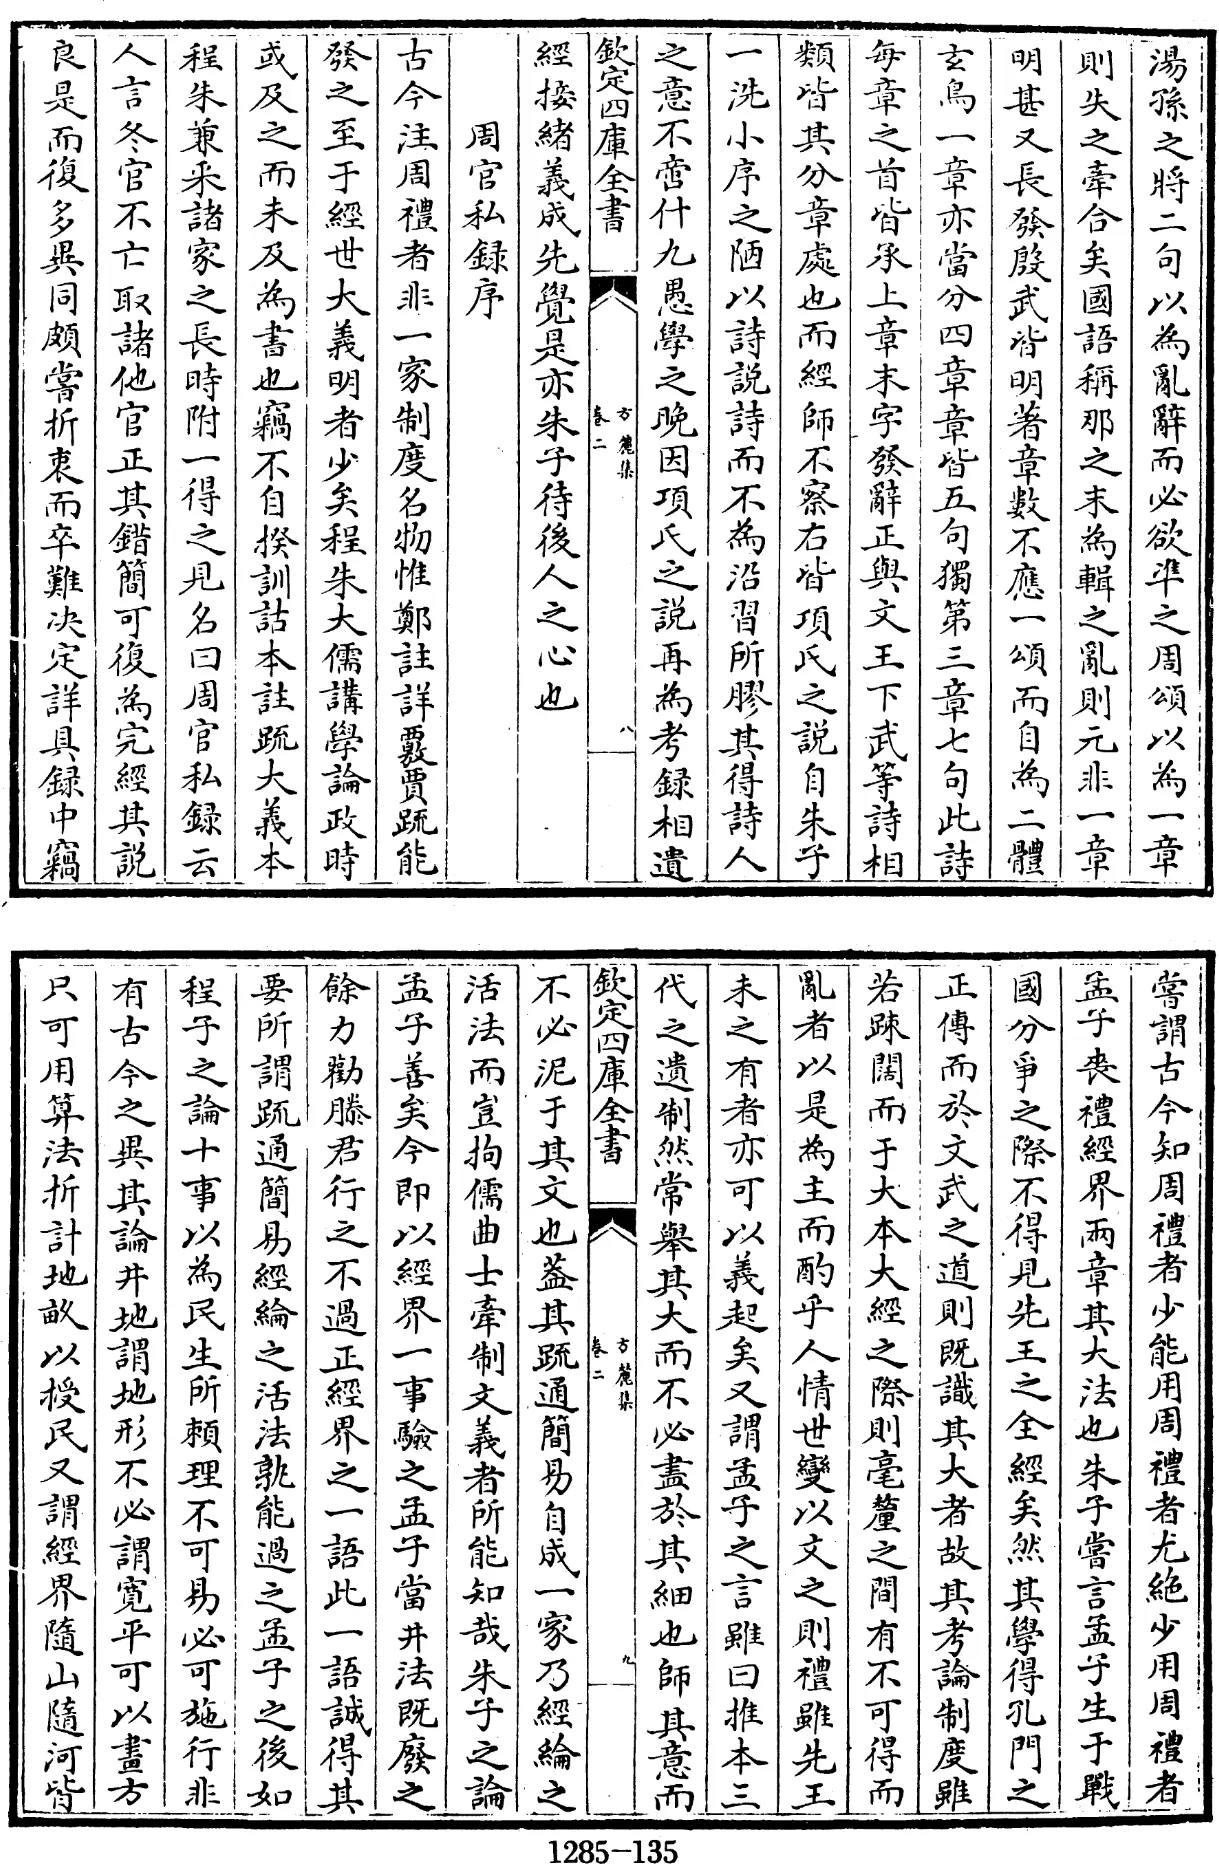 湯孫之將二句以為亂辭而必欲準之周頌以為一章
則失之牽合矣國語稱那之末為輯之亂則元非一章
明甚又長發殷武皆明著章數不應一頌而自為二體
玄鳥一章亦當分四章章皆五句獨第三章七句此詩
每章之首皆承上章末字發辭正與文王下武等詩相
類皆其分章處也而經師不察右皆項氏之說自朱子
一洗小序之陋以詩說詩而不為沿習所膠其得詩人
之意不啻什九愚學之晚因項氏之說再為考録相遺
欽定四庫全書
方麓集
卷二
八
經接緒義成先覺是亦朱子待後人之心也
周官私録序
古今注周禮者非一家制度名物惟鄭註詳覈賈疏能
發之至于經世大義明者少矣程朱大儒講學論政時
或及之而未及為書也竊不自揆訓詁本註疏大義本
程朱兼采諸家之長時附一得之見名曰周官私録云
人言冬官不亡取諸他官正其錯簡可復為完經其說
良是而復多異同頗嘗折衷而卒難決定詳具録中竊
嘗謂古今知周禮者少能用周禮者尤絶少用周禮者
孟子喪禮經界兩章其大法也朱子嘗言孟子生于戰
國分爭之際不得見先王之全經矣然其學得孔門之
正傳而於文武之道則既識其大者故其考論制度雖
若踈闊而于大本大經之際則毫釐之間有不可得而
亂者以是為主而酌乎人情世變以文之則禮雖先王
未之有者亦可以義起矣又謂孟子之言雖曰推本三
代之遺制然常舉其大而不必盡於其細也師其意而
欽定四庫全書
方麓集
卷二
九
不必泥于其文也蓋其疏通簡易自成一家乃經綸之
活法而豈拘儒曲士牽制文義者所能知哉朱子之論
孟子善矣今即以經界一事驗之孟子當井法既廢之
餘力勸滕君行之不過正經界之一語此一語誠得其
要所謂疏通簡易經綸之活法孰能過之孟子之後如
程子之論十事以為民生所頼理不可易必可施行非
有古今之異其論井地謂地形不必謂寛平可以畫方
只可用算法折計地畝以授民又謂經界隨山隨河皆
1285-135